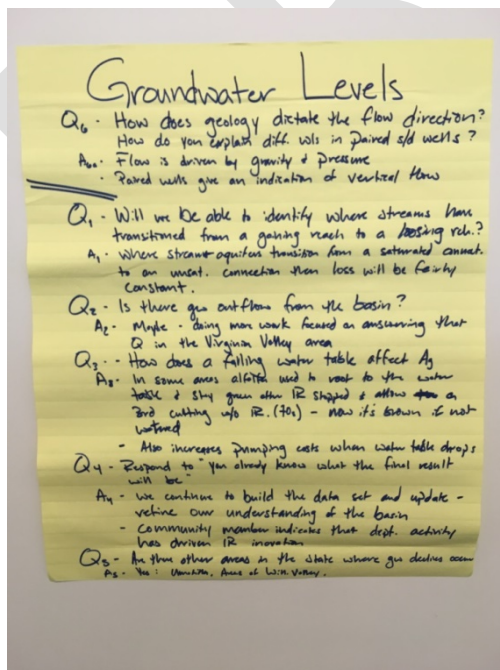 Groundwater Levels
Q6 - How does geology dictate the flow direction?
How do you explain diff. wls in paired s/d wells?
A6a - Flow is driven by gravity & pressure
- Paired wells give an indication of vertical flow
Q1 - Will we be able to identify where streams have
transitioned from a gaining reach to a loosing rch.?
A1 - Where stream aquifers transition from a saturated connect.
to an unsat. connection then loss will be fairly
constant.
Q2 - Is there gw outflow from the basin?
A2 - Maybe - doing more work focused on answering that
Q in the Virginia Valley area
Q3 - How does a falling water table affect Ag
A3 - In some areas alfalfa used to root to the water
table & stay green after IR stopped & allow a
3rd cutting w/o IR. (70s) - now it's brown if not
watered
- Also increases pumping costs when water table drops
Q4 - Respond to "you already know what the final result
will be"
A4 - we continue to build the data set and update -
refine our understanding of the basin
- Community member indicates that dept. activity
has driven IR inovation
Q5 - Are there other areas in the state where gw declines occur
A5 - Yes: Umatilla, Areas of Will. Valley.